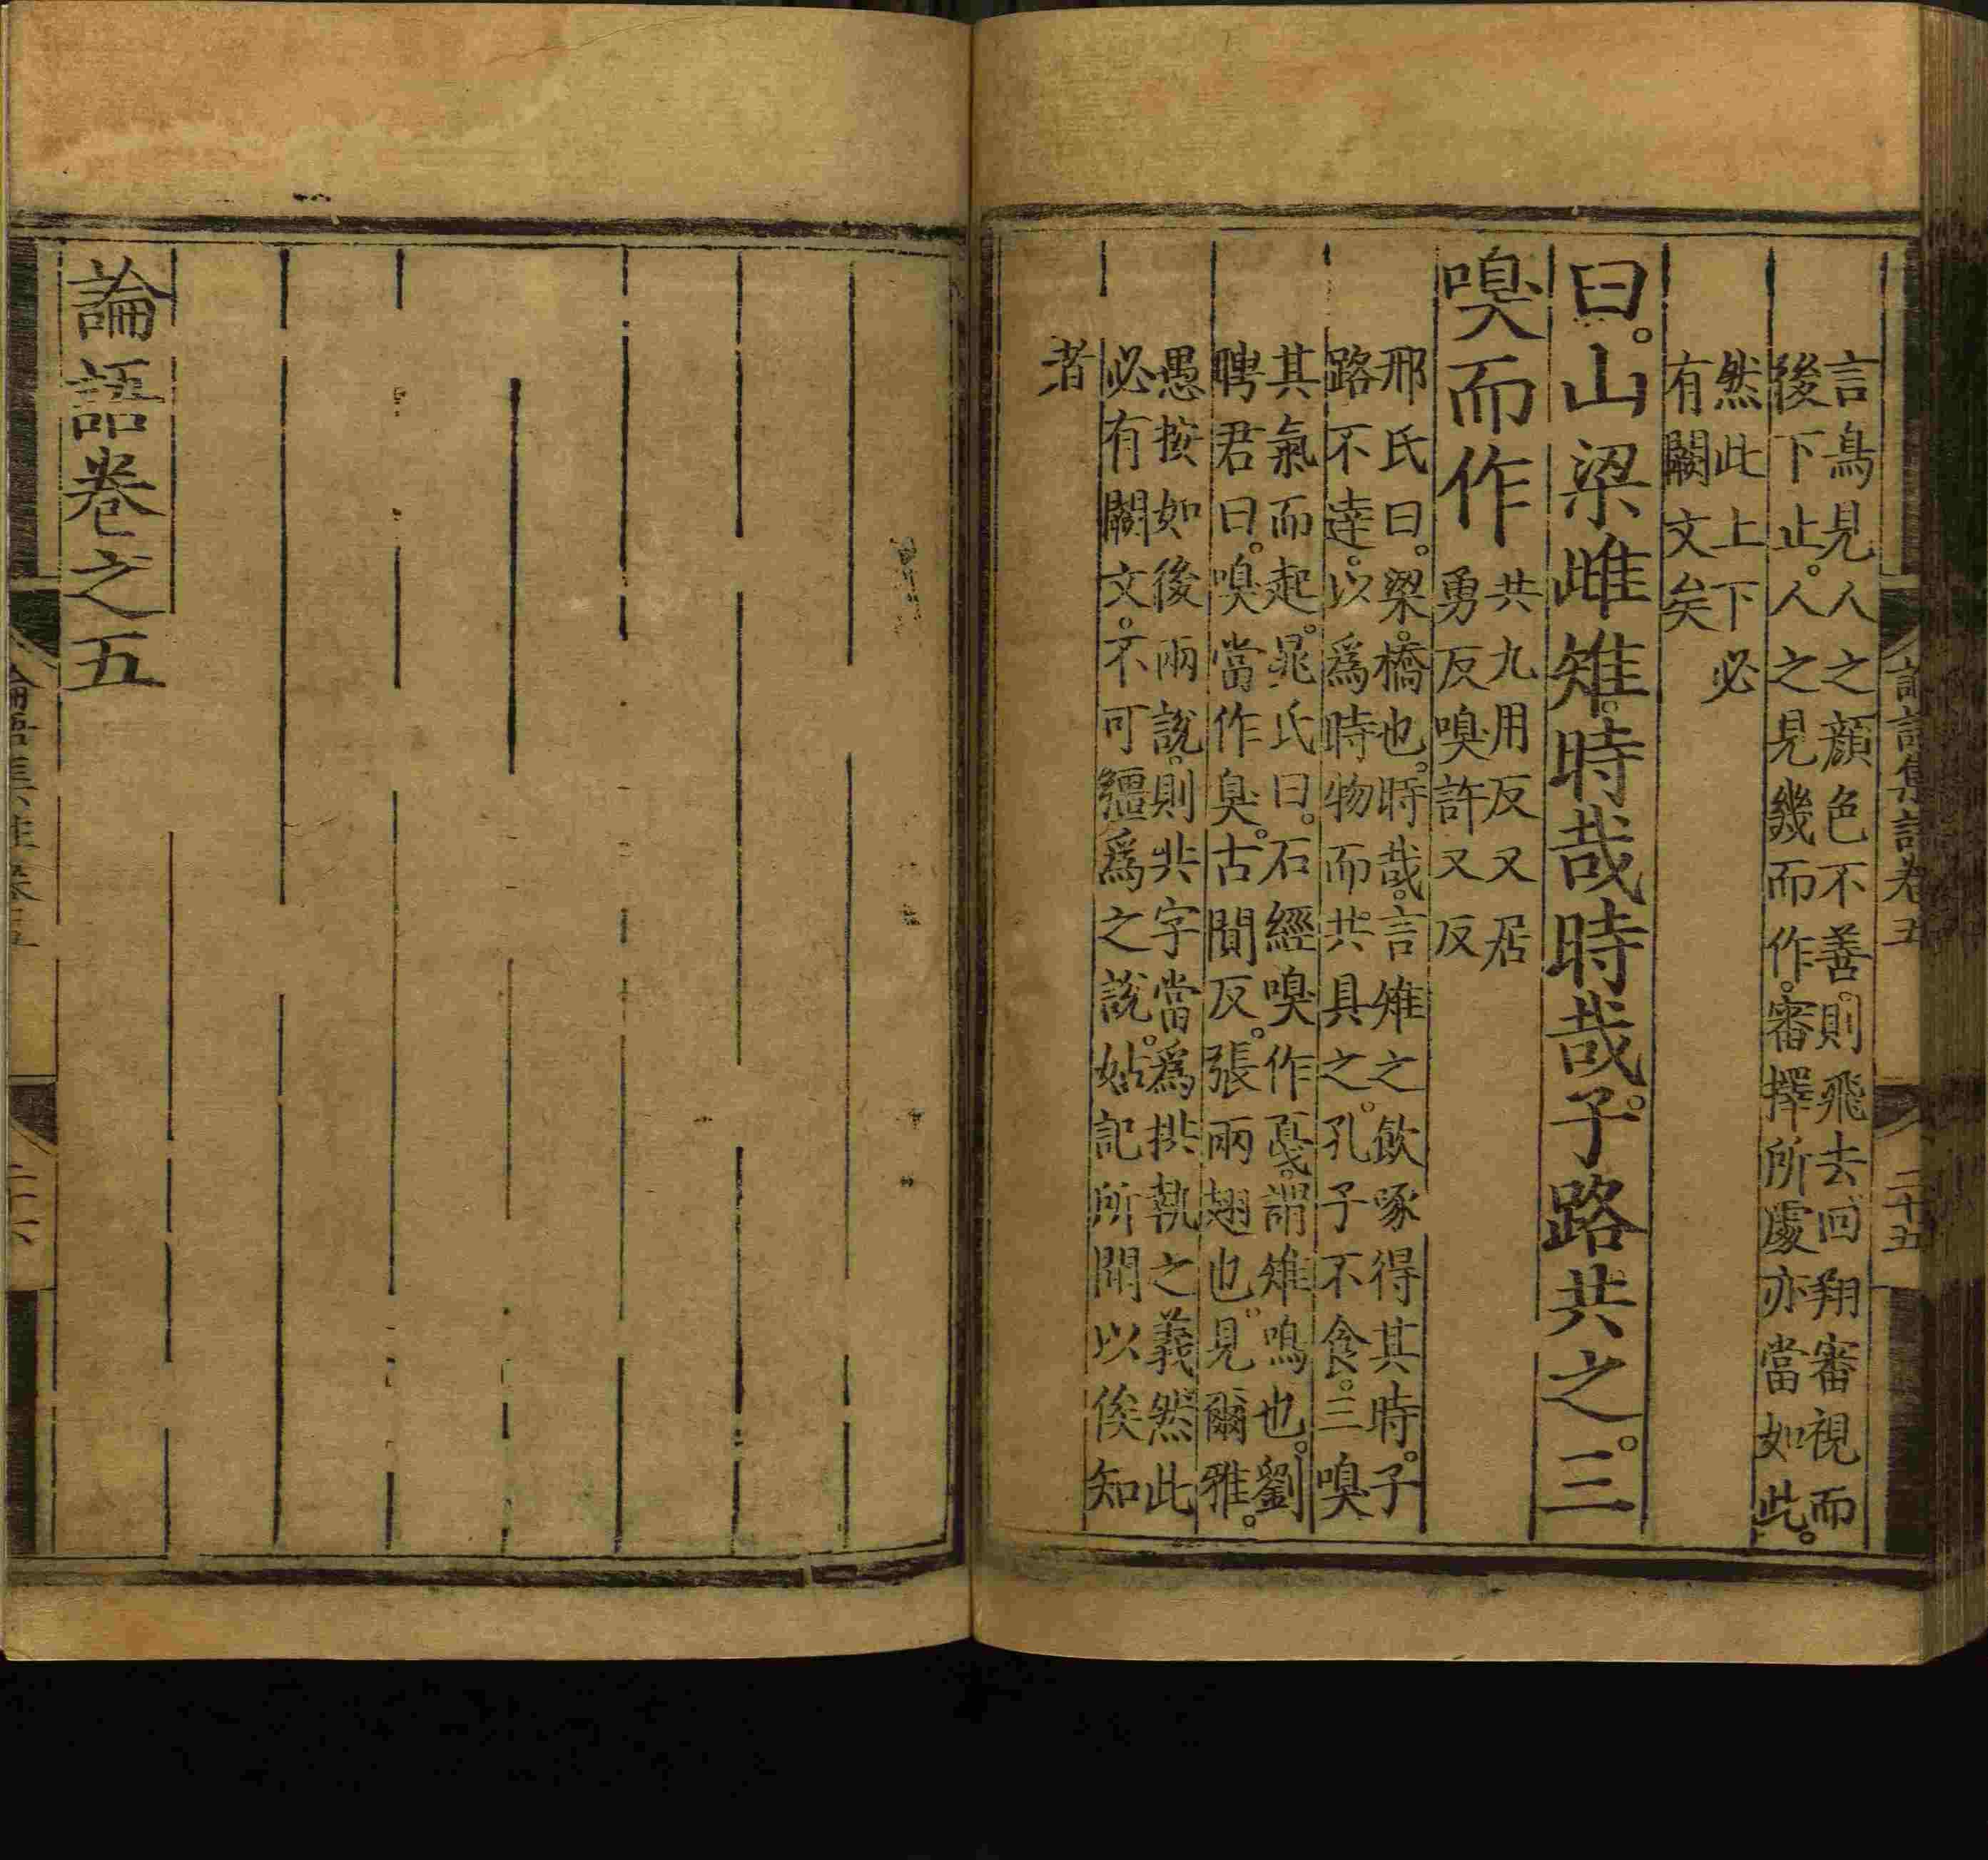 言鳥見人之顏色不善。則飛去。回翔審視而
後下止。人之見幾而作。審擇所處。亦當如此。
然此上下必
有闕文矣
曰。山梁雌雉。時哉時哉。子路共之。三
嗅而作
共九用反又居
勇反嗅許又反
邢氏曰。梁。橋也。時哉。言雉之飲啄得其時。子
路不達。以爲時物而共具之。孔子不食。三嗅
其氣而起。晁氏曰。石經嗅作戞。謂雉鳴也。劉
聘君曰。嗅當作臭。古闃反。張兩翅也。見爾雅。
愚按如後兩說。則共字當爲拱執之義。然此
必有闕文。不可彊爲之說。姑記所聞以俟知
者
語集註卷五
二十五
論語卷之五